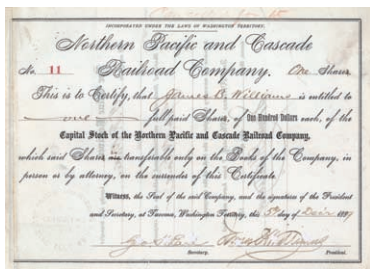 INCORPORATED UNDER THE LAWS OF WASHINGTON TERRITORY.
Northern Pacific and Cascade
No. 11 Railroad Company. One Shares
This is to Certify, that James B. Williams is entitled to
one full paid Shares, of One Hundred Dollars each, of the
Capital Stock of the Northern Pacific and Cascade Railroad Company,
which said Shares transferable only on the Books of the Company, in
person or by attorney, on the surrender of this Certificate.
Witness, the Seal of the said Company, and the signatures of the President
and Secretary, at Tacoma, Washington Territory, this day of 188
Secretary. President.